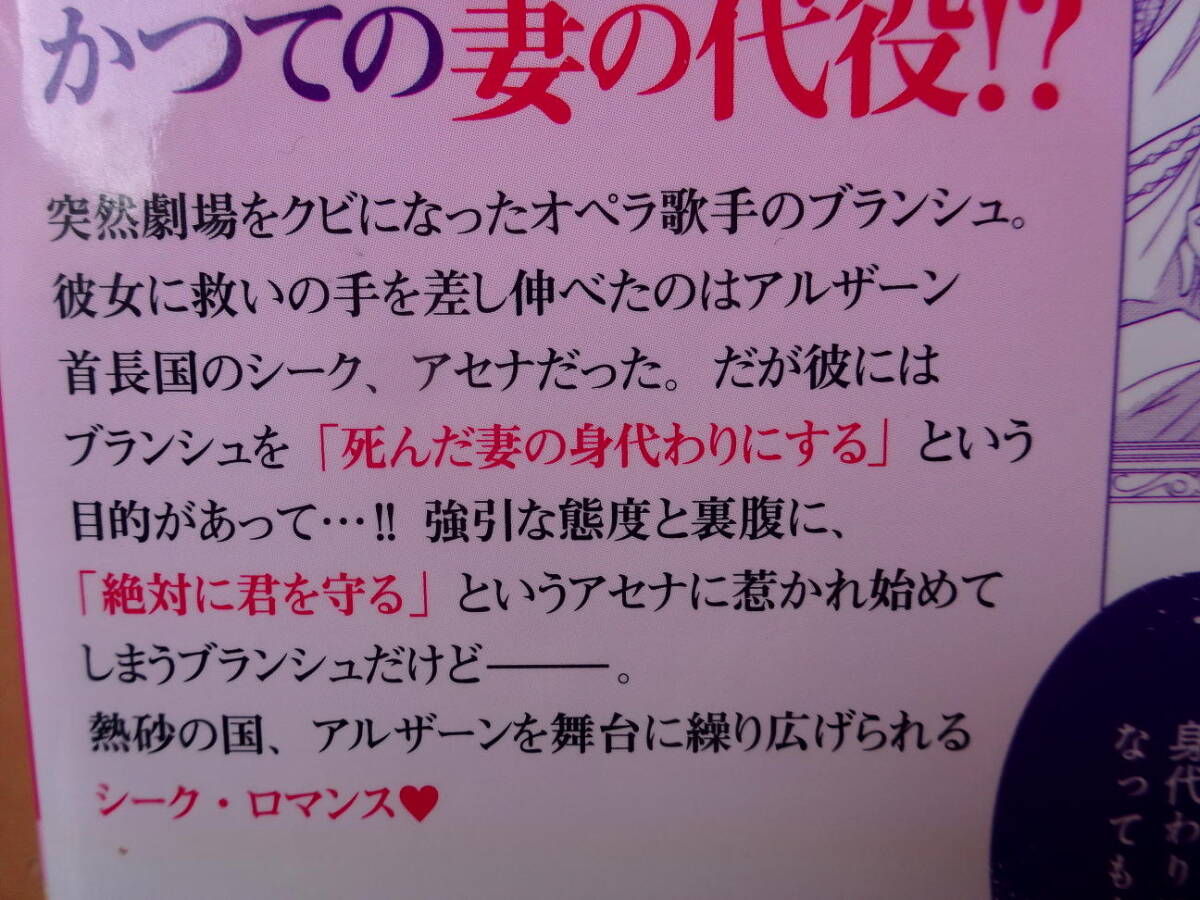 かつての妻の代役!?
突然劇場をクビになったオペラ歌手のブランシュ。
彼女に救いの手を差し伸べたのはアルザーン
首長国のシーク、アセナだった。だが彼には
ブランシュを「死んだ妻の身代わりにする」という
目的があって…!! 強引な態度と裏腹に、
「絶対に君を守る」というアセナに惹かれ始めて
しまうブランシュだけど――。
熱砂の国、アルザーンを舞台に繰り広げられる
シーク・ロマンス♥
身代わり
なっても